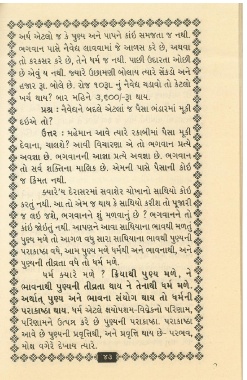 અર્થ એટલો જ કે પુણ્ય અને પાપને કાંઈ સમજતા જ નથી.
ભગવાન પાસે નૈવેદ્ય લાવવામાં જે આળસ કરે છે, અથવા
તો કરકસર કરે છે, તેને ધર્મ જ નથી. પાછી ઉદારતા ઓછી
છે એવું ય નથી. જ્યારે ઉછામણી બોલાય ત્યારે સેંકડો અને
હજાર રૂા. બોલે છે. રોજ ૧૦રૂા. નું નૈવેદ્ય ચડાવો તો કેટલો
ખર્ચ થાય? બાર મહિને ૩,૬૦૦/-રૂા થાય.
પ્રશ્ન : નૈવેદ્યને બદલે એટલાં જ પૈસા ભંડારમાં મૂકી
દઈએ તો?
ઉત્તર : મહેમાન આવે ત્યારે રકાબીમાં પૈસા મૂકી
દેવાના, ચાલશે? આવી વિચારણા એ તો ભગવાન પ્રત્યે
અવજ્ઞા છે. ભગવાનની આજ્ઞા પ્રત્યે અવજ્ઞા છે. ભગવાન
તો સર્વ શક્તિના માલિક છે. એમની પાસે પૈસાની કોઈ
જ કિંમત નથી.
ક્યારેય દેરાસરમાં સવાશેર ચોખાનો સાથિયો કોઈ
કરતું નથી. આ તો એમ જ થાય કે સાથિયો કરીશ તો પૂજારી
જ લઈ જશે, ભગવાનને શું મળવાનું છે? ભગવાનને તો
કાંઈ જોઈતું નથી. આપણને આવા સાથિયાના ભાવથી મળતું
પુણ્ય મળે તો આગળ વધુ સારા સાથિયાના ભાવથી પુણ્યની
પરાકાષ્ઠા વધે, આમ પુણ્ય મળે ધર્મથી અને ભાવનાથી, અને
પુણ્યની તીવ્રતા વધે તો ધર્મ મળે.
ધર્મ ક્યારે મળે ? ક્રિયાથી પુણ્ય મળે, ને
ભાવનાથી પુણ્યની તીવ્રતા થાય ને તેનાથી ધર્મ મળે.
અર્થાત્ પુણ્ય અને ભાવના સંયોગ થાય તો ધર્મની
પરાકાષ્ઠા થાય. ધર્મ એટલે ક્ષયોપશમ-વિવેકનો પરિણામ,
પરિણામને ઉત્પન્ન કરે છે પુણ્યની પરાકાષ્ઠા. પરાકાષ્ઠા
આવે છે પુણ્યની પ્રવૃત્તિથી, અને પ્રવૃત્તિ થાય છે- પરભવ,
મોક્ષ વગેરે દેખાય ત્યારે.
૪૩